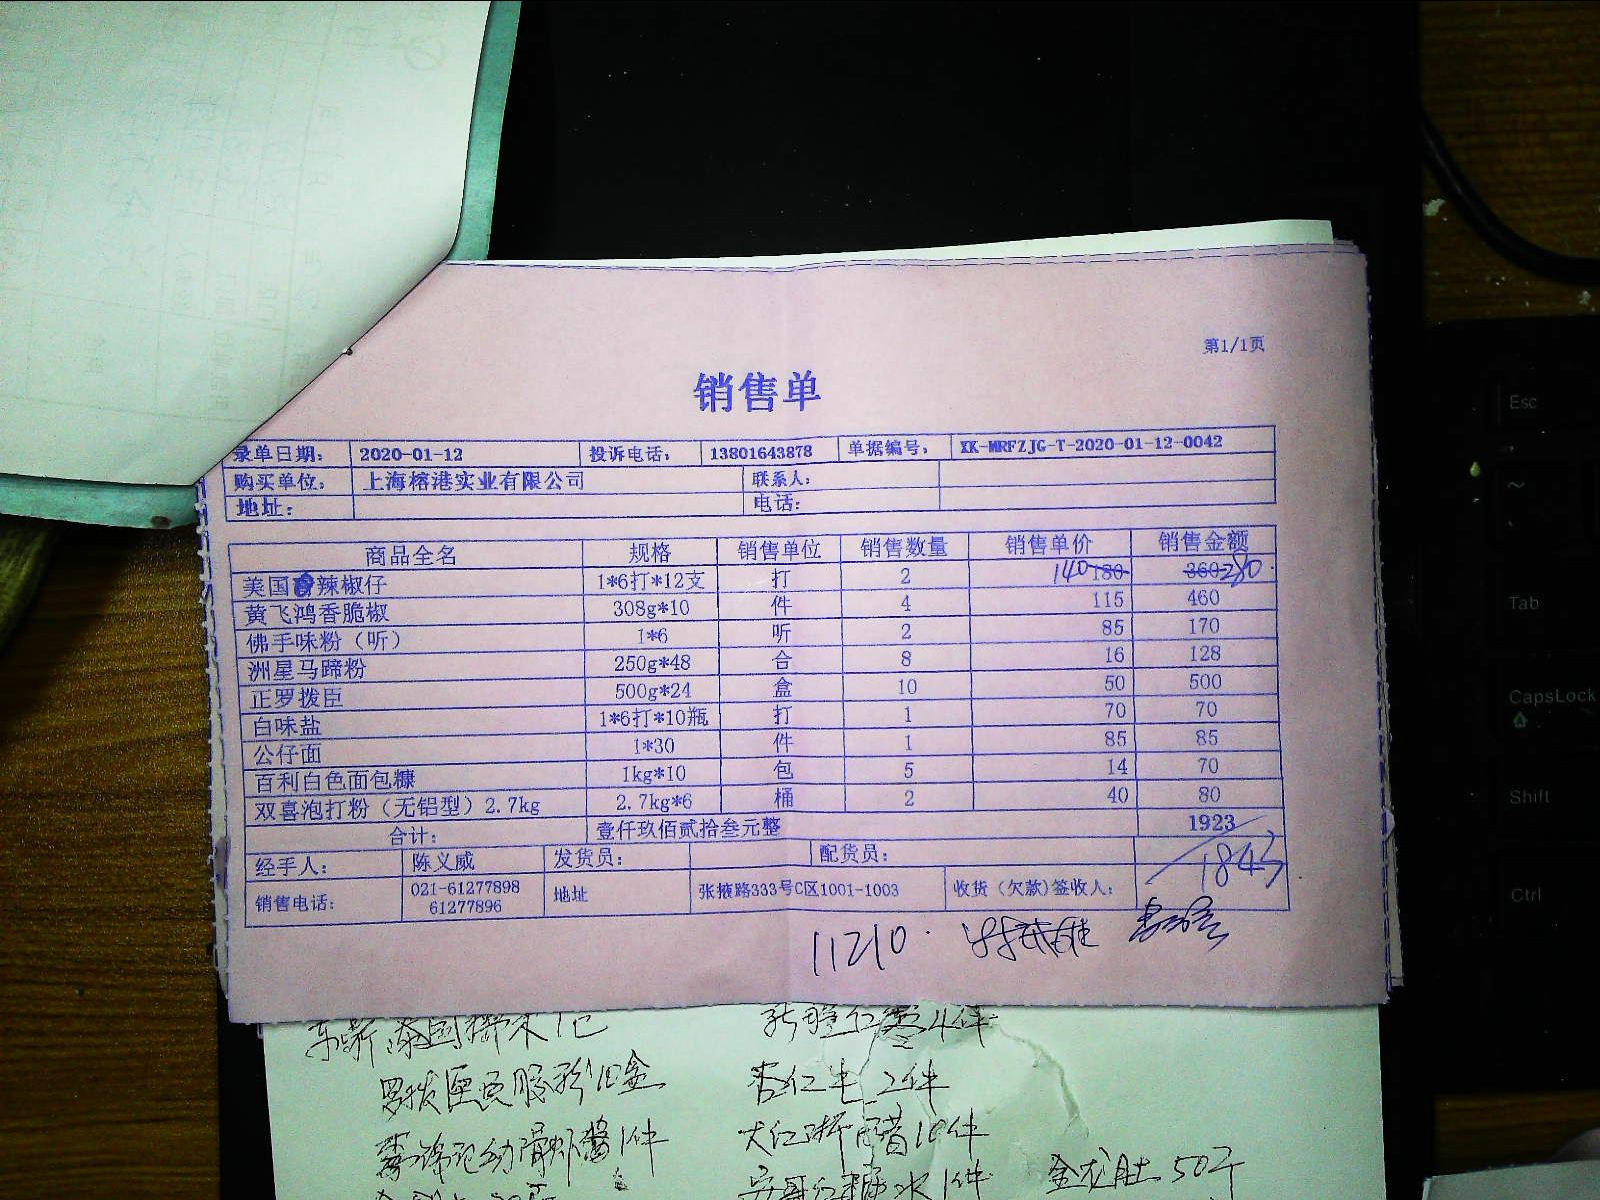 第1/1页
销售单
录单日期: 2020-01-12 投诉电话: 13801643878 单据编号: XK-MRFZJG-T-2020-01-12-0042
购买单位: 上海榕港实业有限公司 联系人:
地址: 电话:
商品全名 规格 销售单位 销售数量 销售单价 销售金额
美国 辣椒仔 1*6打*12支 打 2 140 180 360 280
黄飞鸿香脆椒 308g*10 件 4 115 460
佛手味粉（听） 1*6 听 2 85 170
洲星马蹄粉 250g*48 合 8 16 128
正罗拨臣 500g*24 盒 10 50 500
白味盐 1*6打*10瓶 打 1 70 70
公仔面 1*30 件 1 85 85
百利白色面包糠 1kg*10 包 5 14 70
双喜泡打粉（无铝型）2.7kg 2.7kg*6 桶 2 40 80
合计: 壹仟玖佰贰拾叁元整 1923
1843
经手人: 陈义威 发货员: 配货员:
销售电话: 021-61277898 61277896 地址 张掖路333号C区1001-1003 收货（欠款)签收人:
11210
4件
杏仁 2件
1件
大红浙醋10件
1件 50斤
Esc
~
Tab
CapsLock
Shift
Ctrl